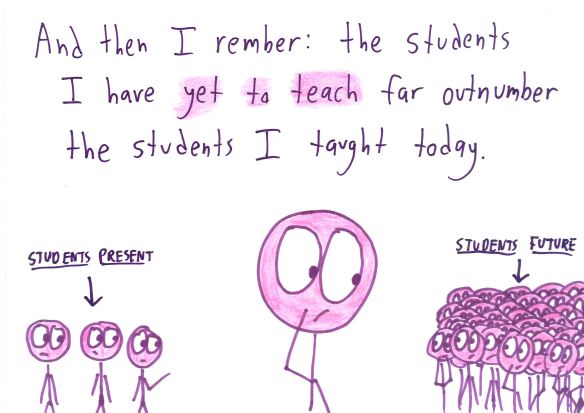 And then I rember: the students
I have yet to teach far outnumber
the students I taught today.
STUDENTS PRESENT
STUDENTS FUTURE